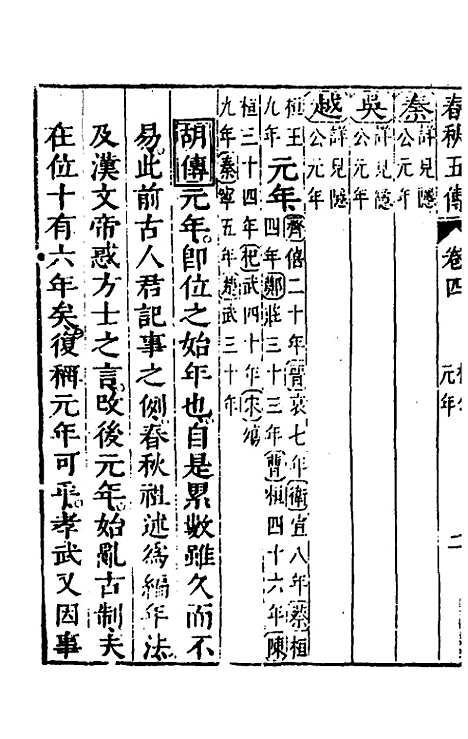 春秋五傳 卷四 元年 二
秦 詳見隱公元年
吳 詳見隱公元年
越 詳見隱公元年
桓王九年 元年 齊僖二十年 晉哀七年 衛宣八年 蔡桓四年 鄭莊三十三年 曹桓四十六年 陳
桓三十四年 杞武四十年 宋殤九年 秦寧五年 楚武三十年
胡傳 元年即位之始年也自是累數雖久而不
易此前古人君記事之例春秋祖述為編年法
及漢文帝惑方士之言改後元年始亂古制夫
在位十有六年矣復稱元年可乎孝武又因事